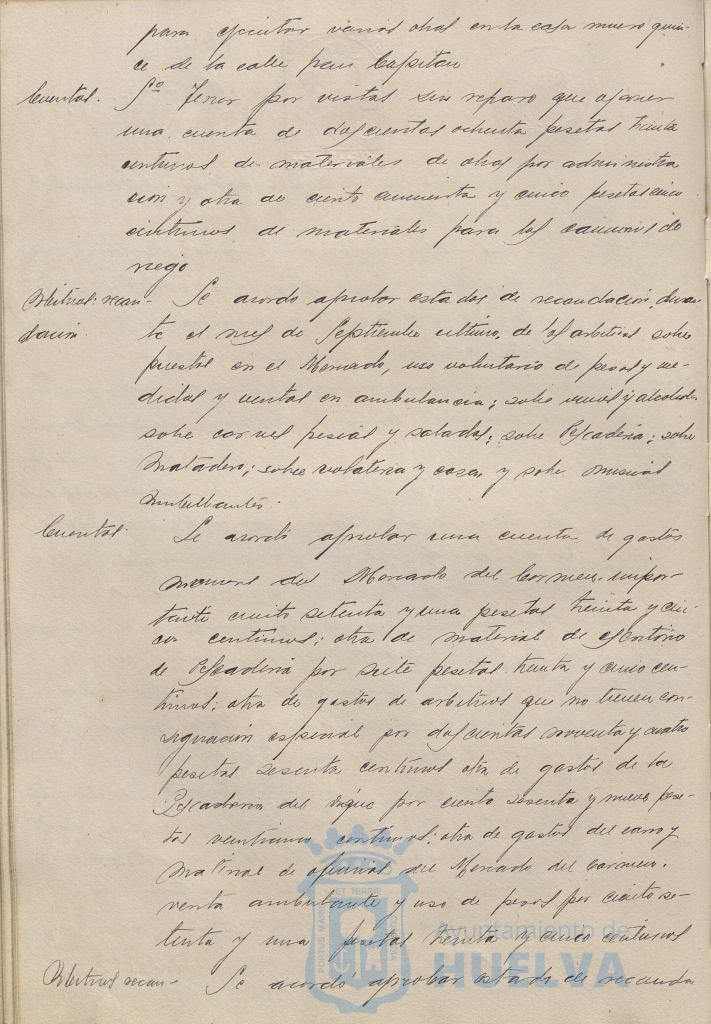 para ejecutar varias obras en la casa numero quin-
ce de la calle Gran Capitan
Cuentas. Sº Tener por vistas sin reparo que oponer
una cuenta de doscientas ochenta pesetas treinta
centimos de materiales de obras por administra
cion y otra de ciento cincuenta y cinco pesetas cinco
centimos de materiales para los camiones de
riego
Arbitrios: recau- Se acordo aprobar estados de recaudación, duran
dación. te el mes de Septiembre ultimo, de los arbitrios sobre
puestos en el Mercado, uso voluntario de pesas y me-
didas y ventas en ambulancia; sobre vinos y alcoholes
sobre carnes frescas y saladas; sobre Pescaderia; sobre
Matadero; sobre volateria y caza y sobre musicas
ambulantes.
Cuentas. Se acordó aprobar una cuenta de gastos
menores del Mercado del Carmen, impor
tante ciento setenta y una pesetas treinta y cin-
co centimos; otra de material de escritorio
de Pescaderia por siete pesetas treinta y cinco cen-
timos; otra de gastos de arbitrios que no tienen con-
signacion especial por doscientas noventa y cuatro
pesetas sesenta centimos otra de gastos de la
Pescaderia del dique por ciento sesenta y nueve pese-
tas veinticinco centimos; otra de gastos del carro y
material de oficinas del Mercado del Carmen.
venta ambulante y uso de pesas por ciento se-
tenta y una pesetas treinta y cinco centimos
Arbitrios recau- Se acordó aprobar estado de recauda
PORTUS MARIS ET TERRÆ CUSTODIA
Ayuntamiento de
HUELVA